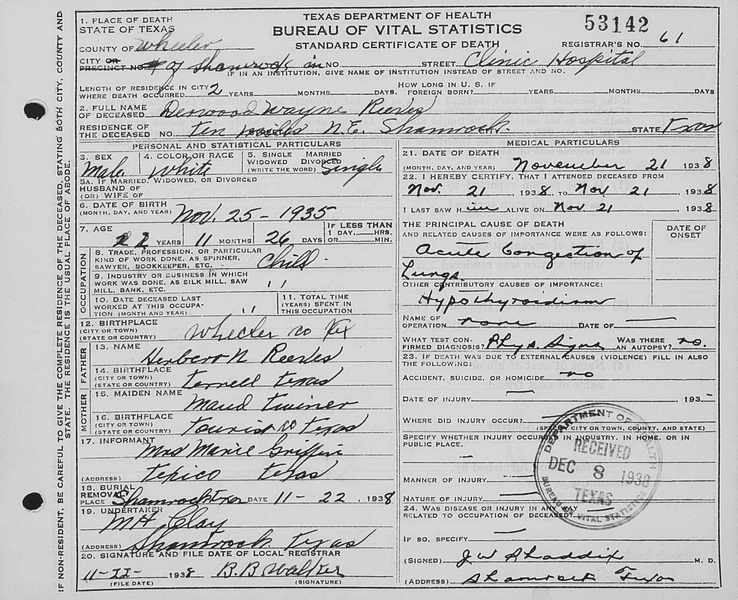 TEXAS DEPARTMENT OF HEALTH
BUREAU OF VITAL STATISTICS
STANDARD CERTIFICATE OF DEATH
53142
REGISTRAR'S NO. 61
1. PLACE OF DEATH
STATE OF TEXAS
COUNTY OF Wheeler
CITY OR
PRECINCT NO. of Shamrock in NO. STREET. Clinic Hospital
IF IN AN INSTITUTION, GIVE NAME OF INSTITUTION INSTEAD OF STREET AND NO.
LENGTH OF RESIDENCE IN CITY 2 HOW LONG IN U. S. IF
WHERE DEATH OCCURRED YEARS MONTHS DAYS FOREIGN BORN? YEARS MONTHS DAYS
2. FULL NAME
OF DECEASED Derwood Wayne Reeves
RESIDENCE OF
THE DECEASED NO. Ten miles N.E. Shamrock. STATE Texas
PERSONAL AND STATISTICAL PARTICULARS
3. SEX 4. COLOR OR RACE 5. SINGLE MARRIED
WIDOWED DIVORCED
(WRITE THE WORD) Single
Male White
5A. IF MARRIED, WIDOWED, OR DIVORCED
HUSBAND OF
(OR) WIFE OF
6. DATE OF BIRTH
(MONTH, DAY, AND YEAR) Nov. 25 - 1935
7. AGE IF LESS THAN
2 YEARS 11 MONTHS 26 DAYS 1 DAY, HRS.
OR MIN.
OCCUPATION
8. TRADE, PROFESSION, OR PARTICULAR
KIND OF WORK DONE, AS SPINNER,
SAWYER, BOOKKEEPER, ETC. Child
9. INDUSTRY OR BUSINESS IN WHICH
WORK WAS DONE, AS SILK MILL, SAW
MILL, BANK, ETC. "
10. DATE DECEASED LAST
WORKED AT THIS OCCUPA-
TION (MONTH AND YEAR) "
11. TOTAL TIME
(YEARS) SPENT IN
THIS OCCUPATION
12. BIRTHPLACE
(CITY OR TOWN)
(STATE OR COUNTRY) Wheeler co Tex
FATHER
13. NAME
Herbert N Reeves
14. BIRTHPLACE
(CITY OR TOWN)
(STATE OR COUNTRY) Texas
MOTHER
15. MAIDEN NAME
Maud
16. BIRTHPLACE
(CITY OR TOWN)
(STATE OR COUNTRY) co Texas
17. INFORMANT
Mrs Marie Griffin
(ADDRESS) Texico Texas
18. BURIAL
REMOVAL
PLACE Shamrock Tex DATE 11-22 1938
19. UNDERTAKER
M H Clay
(ADDRESS) Shamrock Texas
20. SIGNATURE AND FILE DATE OF LOCAL REGISTRAR
11-22- 1938 B.B Walker
(FILE DATE) (SIGNATURE)
MEDICAL PARTICULARS
21. DATE OF DEATH
(MONTH, DAY, AND YEAR) November 21 1938
22. I HEREBY CERTIFY, THAT I ATTENDED DECEASED FROM
Nov. 21 1938 TO Nov 21 1938
I LAST SAW Him ALIVE ON Nov 21 1938
THE PRINCIPAL CAUSE OF DEATH
AND RELATED CAUSES OF IMPORTANCE WERE AS FOLLOWS:
DATE OF
ONSET
Acute Congestion of
Lungs
OTHER CONTRIBUTORY CAUSES OF IMPORTANCE:
Hypothyroidism
NAME OF
OPERATION none DATE OF —
WHAT TEST CON-
FIRMED DIAGNOSIS? Phys Signs WAS THERE
AN AUTOPSY? no.
23. IF DEATH WAS DUE TO EXTERNAL CAUSES (VIOLENCE) FILL IN ALSO
THE FOLLOWING:
ACCIDENT, SUICIDE, OR HOMICIDE no
DATE OF INJURY — 193-
WHERE DID INJURY OCCUR?
(SPECIFY CITY OR TOWN, COUNTY, AND STATE)
SPECIFY WHETHER INJURY OCCURRED IN INDUSTRY, IN HOME, OR IN
PUBLIC PLACE.
MANNER OF INJURY —
NATURE OF INJURY —
24. WAS DISEASE OR INJURY IN ANY WAY
RELATED TO OCCUPATION OF DECEASED?
IF SO, SPECIFY —
(SIGNED) J.W. Shaddix M. D.
(ADDRESS) Shamrock Texas
DEPARTMENT OF HEALTH
RECEIVED
DEC 8 1938
TEXAS
BUREAU OF VITAL STATISTICS
IF NON-RESIDENT, BE CAREFUL TO GIVE THE COMPLETE RESIDENCE OF THE DECEASED STATING BOTH CITY, COUNTY AND
STATE. THE RESIDENCE IS THE USUAL PLACE OF ABODE.